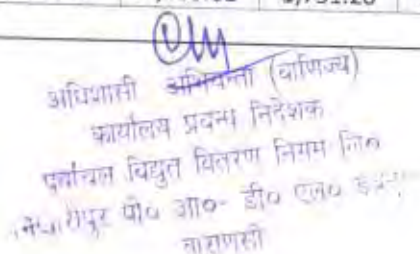 अधिशासी अभियन्ता (वाणिज्य)
कार्यालय प्रबन्ध निदेशक
पूर्वांचल विद्युत वितरण निगम लि०
पो० आ०- डी० एल० डब्लू
वाराणसी